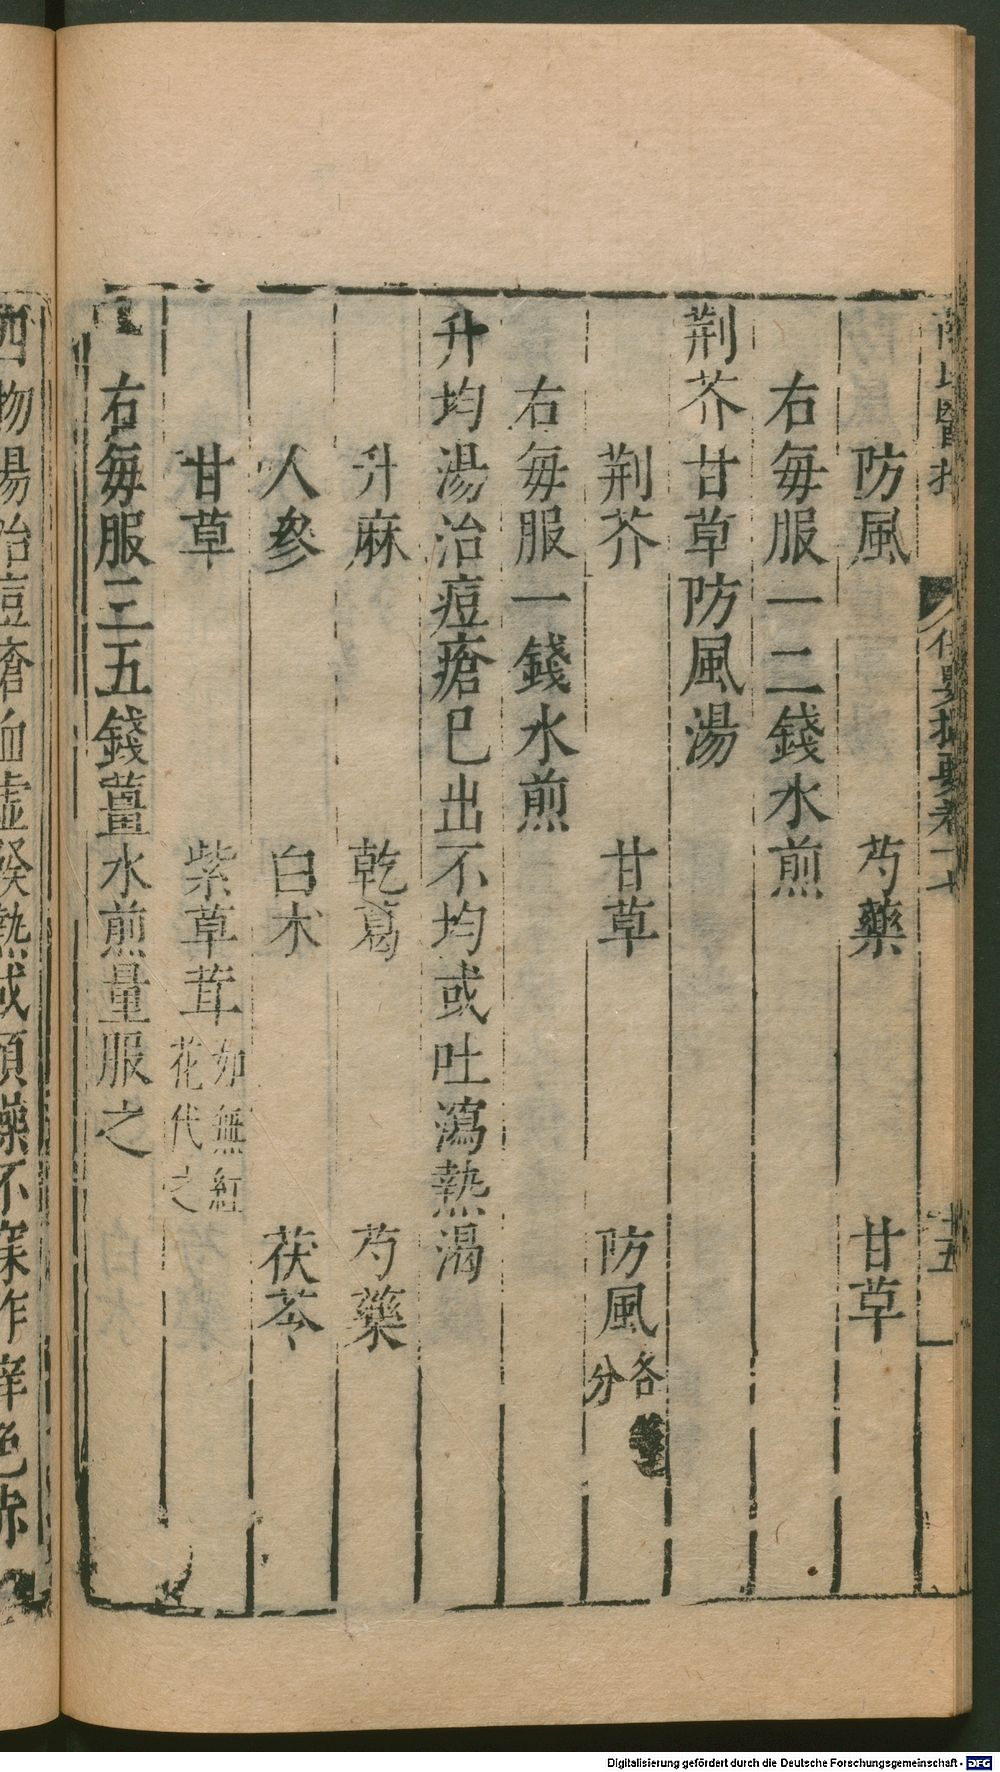 防風　芍藥　甘草
右每服一二錢水煎
荆芥甘草防風湯
荆芥　甘草　防風各分
右每服一錢水煎
升均湯治痘瘡已出不均或吐瀉熱渴
升麻　乾葛　芍藥
人參　白朮　茯苓
甘草　紫草茸如無紅花代之
右每服三五錢薑水煎量服之
四物湯治痘瘡血虛發熱或煩躁不寐作痒色赤
Digitalisierung gefördert durch die Deutsche Forschungsgemeinschaft - DFG